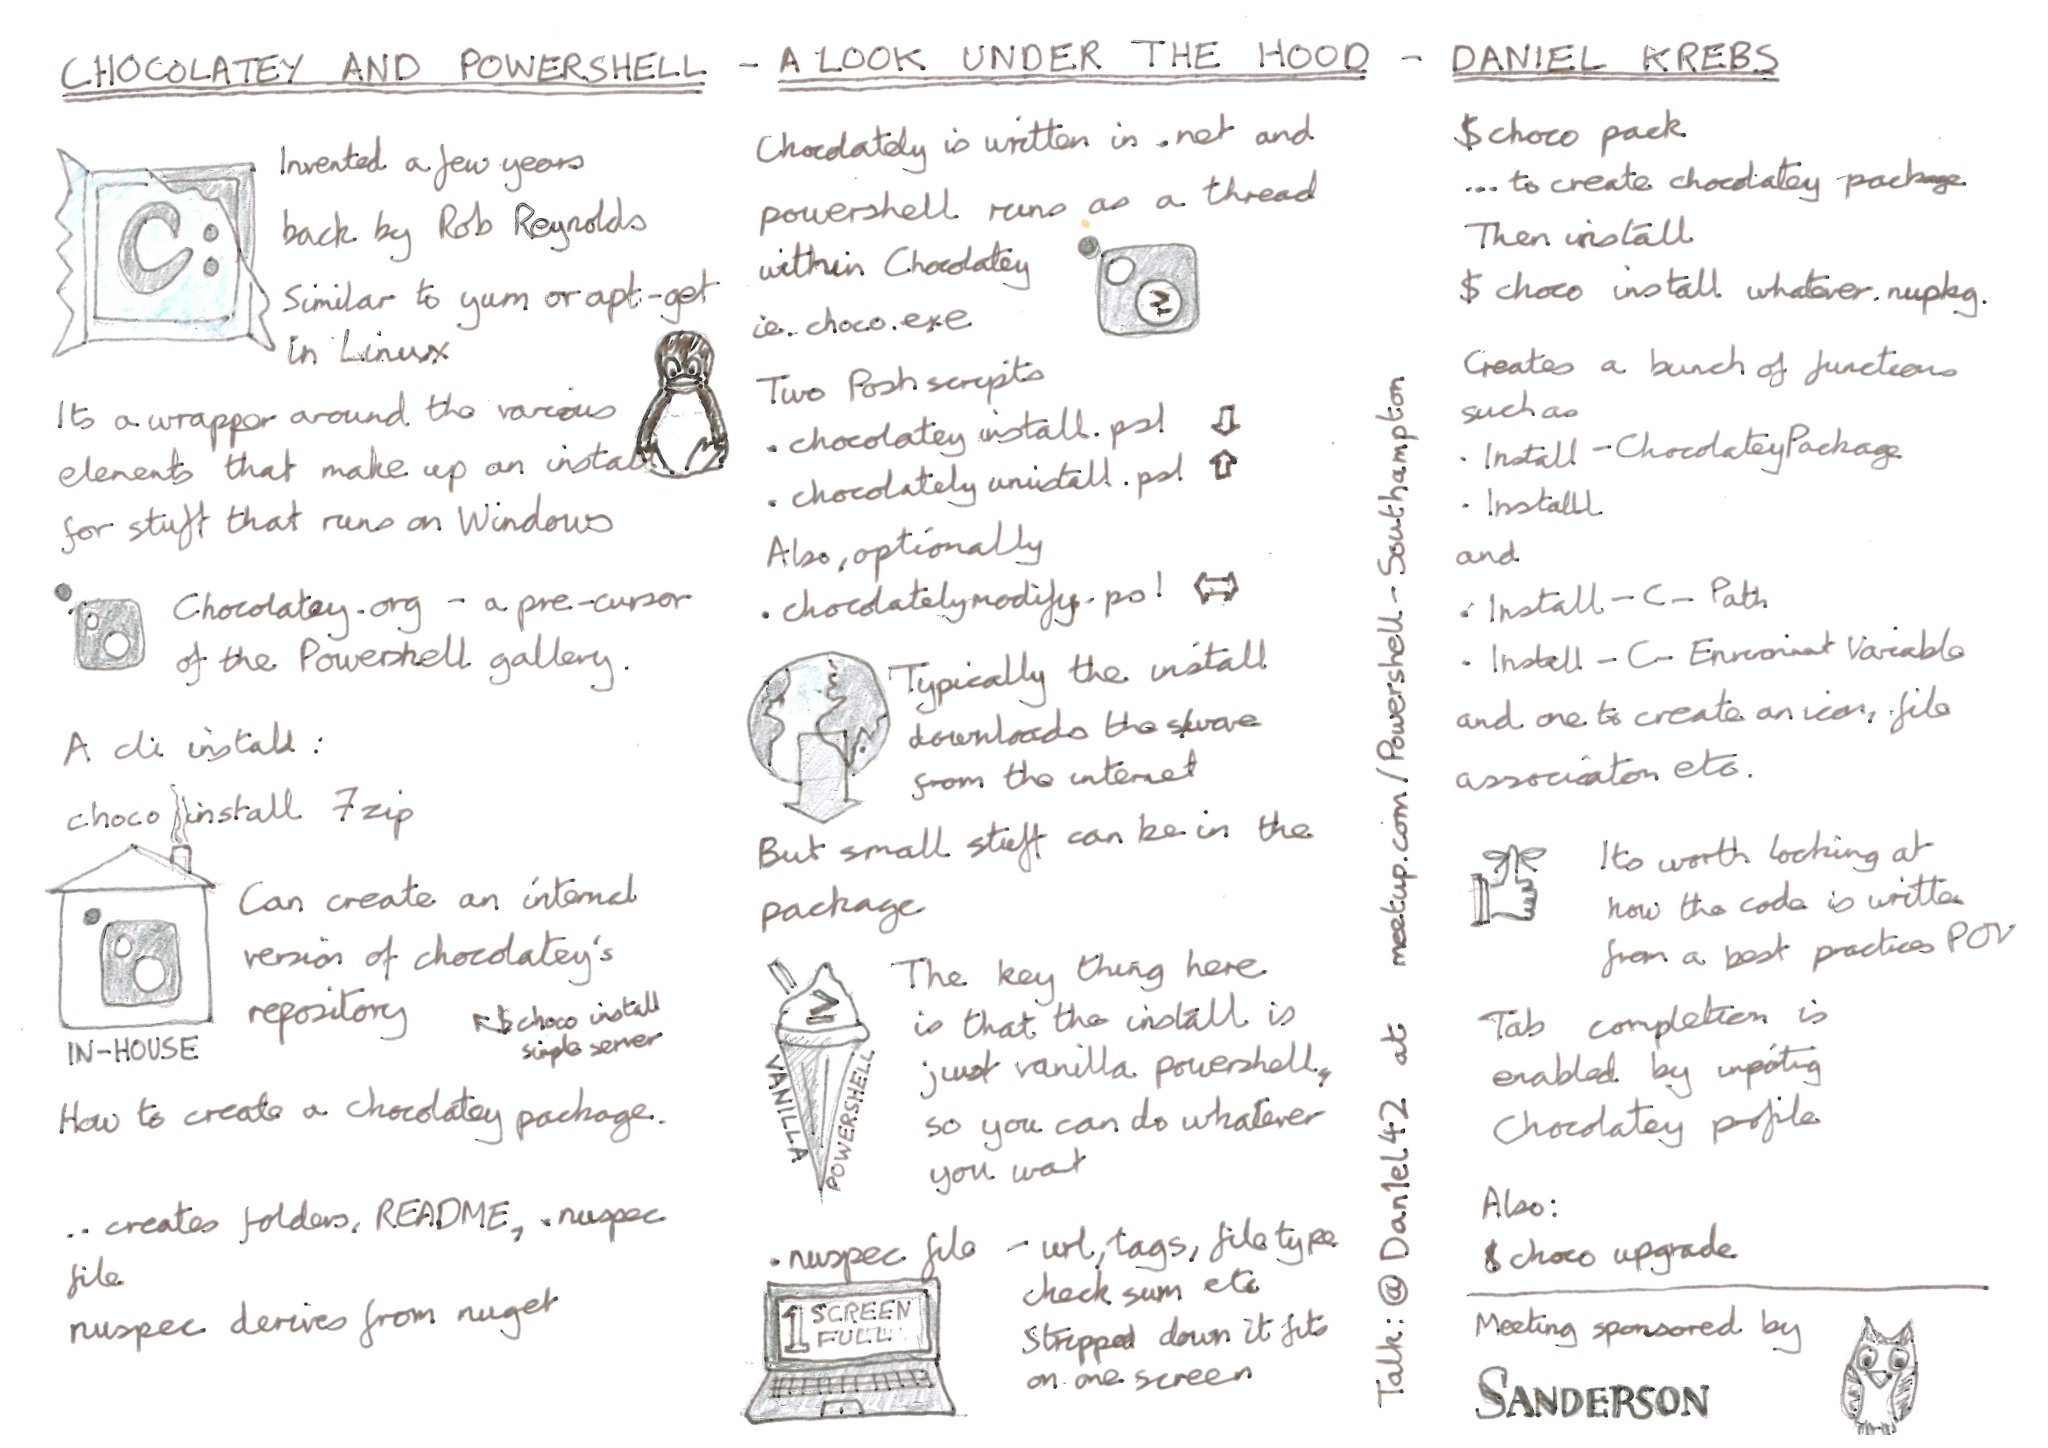 CHOCOLATEY AND POWERSHELL - A LOOK UNDER THE HOOD - DANIEL KREBS
C:
Invented a few years
back by Rob Reynolds
Similar to yum or apt-get
in Linux
Its a wrapper around the various
elements that make up an install
for stuff that runs on Windows
Chocolatey.org - a pre-cursor
of the Powershell gallery.
A cli install:
choco install 7zip
Can create an internal
version of chocolatey's
repository
$ choco install
simple server
IN-HOUSE
How to create a chocolatey package.
.. creates folders, README, .nuspec
file
nuspec derives from nuget
Chocolately is written in .net and
powershell runs as a thread
within Chocolatey
ie. choco.exe
Two Posh scripts
. chocolatey install.ps1
. chocolately uninstall.ps1
Also, optionally
. chocolatelymodify.ps1
Typically the install
downloads the
from the internet
But small stuff can be in the
package
The key thing here
is that the install is
just vanilla powershell,
so you can do whatever
you wat
VANILLA
POWERSHELL
.nuspec file - url, tags, file type
check sum etc
Stripped down it fits
on one screen
1 SCREEN
FULL
Talk: @Dan1el42 at meetup.com/Powershell-Southampton
$ choco pack
... to create chocolatey package
Then install
$ choco install whatever.nupkg.
Creates a bunch of functions
such as
. Install-ChocolateyPackage
. Installl
and
. Install-C-Path
. Install-C- Variable
and one to create an icon, file
associaton etc.
Its worth looking at
how the code is written
from a best practices POV
Tab completion is
enabled by
Chocolatey profile
Also:
$ choco upgrade
Meeting sponsored by
SANDERSON